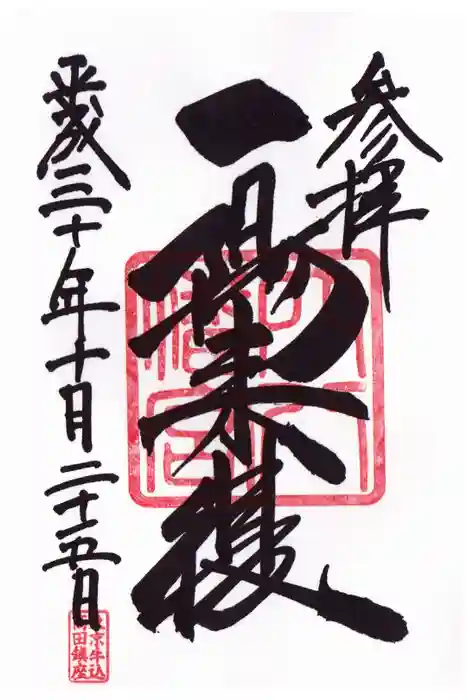 参拝
一陽来復
平成三十年十月二十五日
東京牛込
高田鎮座